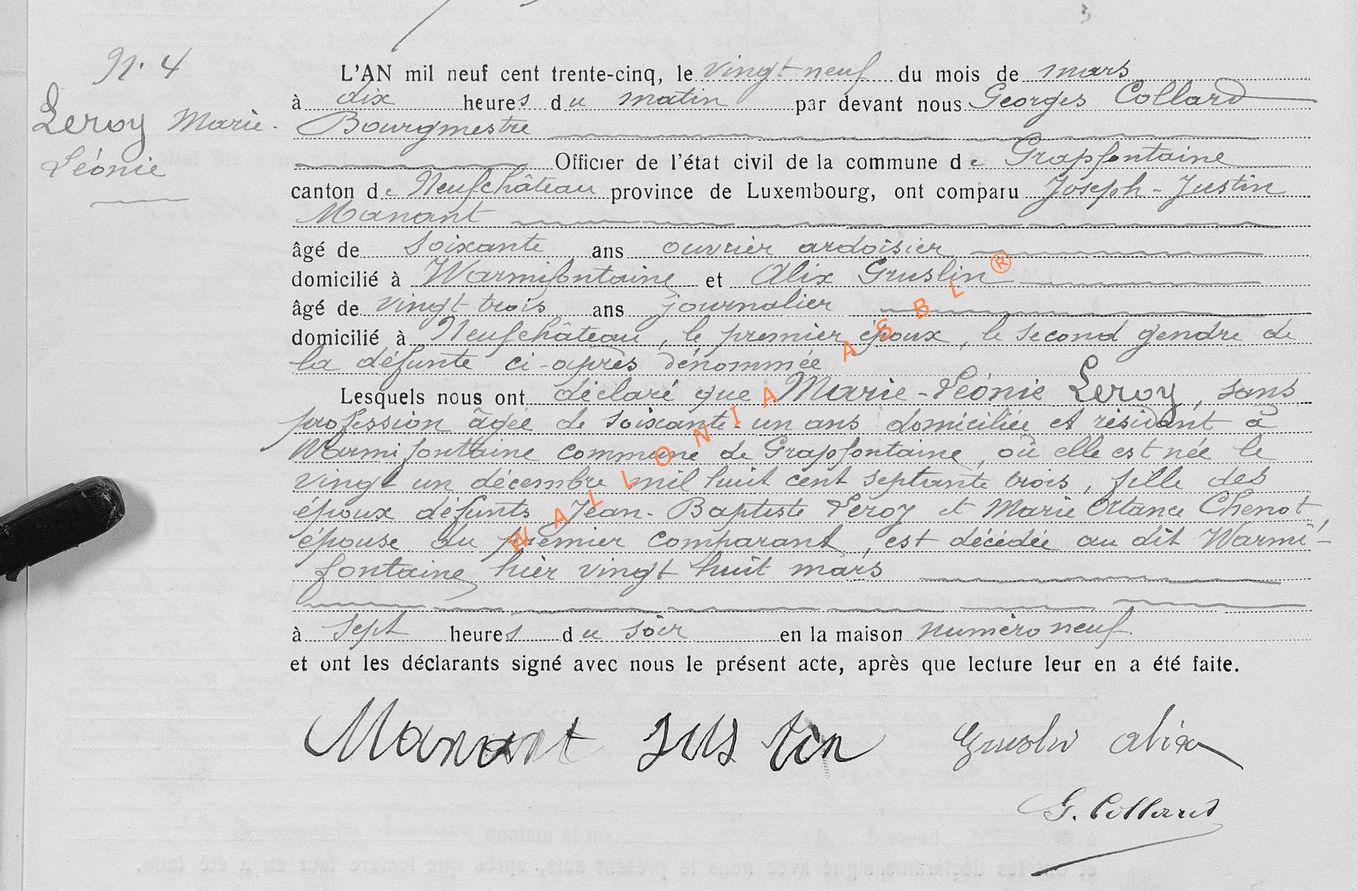 N. 4
Leroy Marie-
Léonie
L'AN mil neuf cent trente-cinq, le vingt neuf du mois de mars
à dix heures du matin par devant nous Georges Collard
Bourgmestre
Officier de l'état civil de la commune de Grapfontaine
canton de Neufchâteau province de Luxembourg, ont comparu Joseph-Justin
Manant
âgé de soixante ans ouvrier ardoisier
domicilié à Warmifontaine et Alix Gruslin
âgé de vingt trois ans journalier
domicilié à Neufchâteau, le premier époux, le second gendre de
la défunte ci-après dénommée
Lesquels nous ont déclaré que Marie-Léonie Leroy, sans
profession âgée de soixante-un ans domiciliée et résidant à
Warmifontaine commune de Grapfontaine, où elle est née le
vingt un décembre mil huit cent septante trois, fille des
époux défunts Jean-Baptiste Leroy et Marie Ortance Chenot,
épouse du premier comparant, est décédée au dit Warmi-
fontaine hier vingt huit mars
à sept heures du soir en la maison numéro neuf
et ont les déclarants signé avec nous le présent acte, après que lecture leur en a été faite.
Manant Justin Gruslin alix
G. Collard
WALLONIA ASBL®